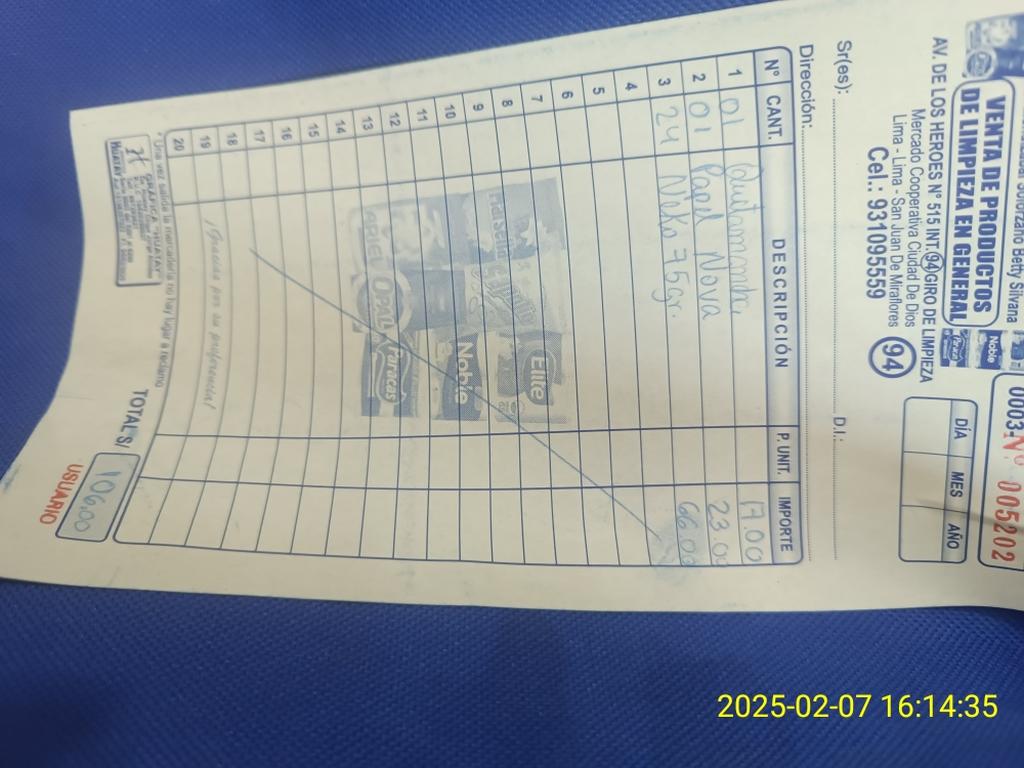 Solorzano Betty Silvana
VENTA DE PRODUCTOS
DE LIMPIEZA EN GENERAL
Noble
AV. DE LOS HEROES N° 515 INT. 94 GIRO DE LIMPIEZA
Mercado Cooperativa Ciudad De Dios
Lima - Lima - San Juan De Miraflores
Cel.: 931095559
94
0003-N° 005202
DÍA MES AÑO
Sr(es): D.I.:
Dirección:
N° CANT. DESCRIPCIÓN P. UNIT. IMPORTE
1 01 Quitamancha 17.00
2 01 Papel Nova 23.00
3 24 Neko 75gr. 66.00
4
5
6
7
8
9
10
11
12
13
14
15
16
17
18
19
20
Elite
Noble
Sapolio
ARIEL
OPAL
Paracas
¡Gracias por su preferencia!
* Una vez salida la mercadería no hay lugar a reclamo
TOTAL S/ 106.00
GRAFICA "HUATAY"
HUATAY
USUARIO
2025-02-07 16:14:35